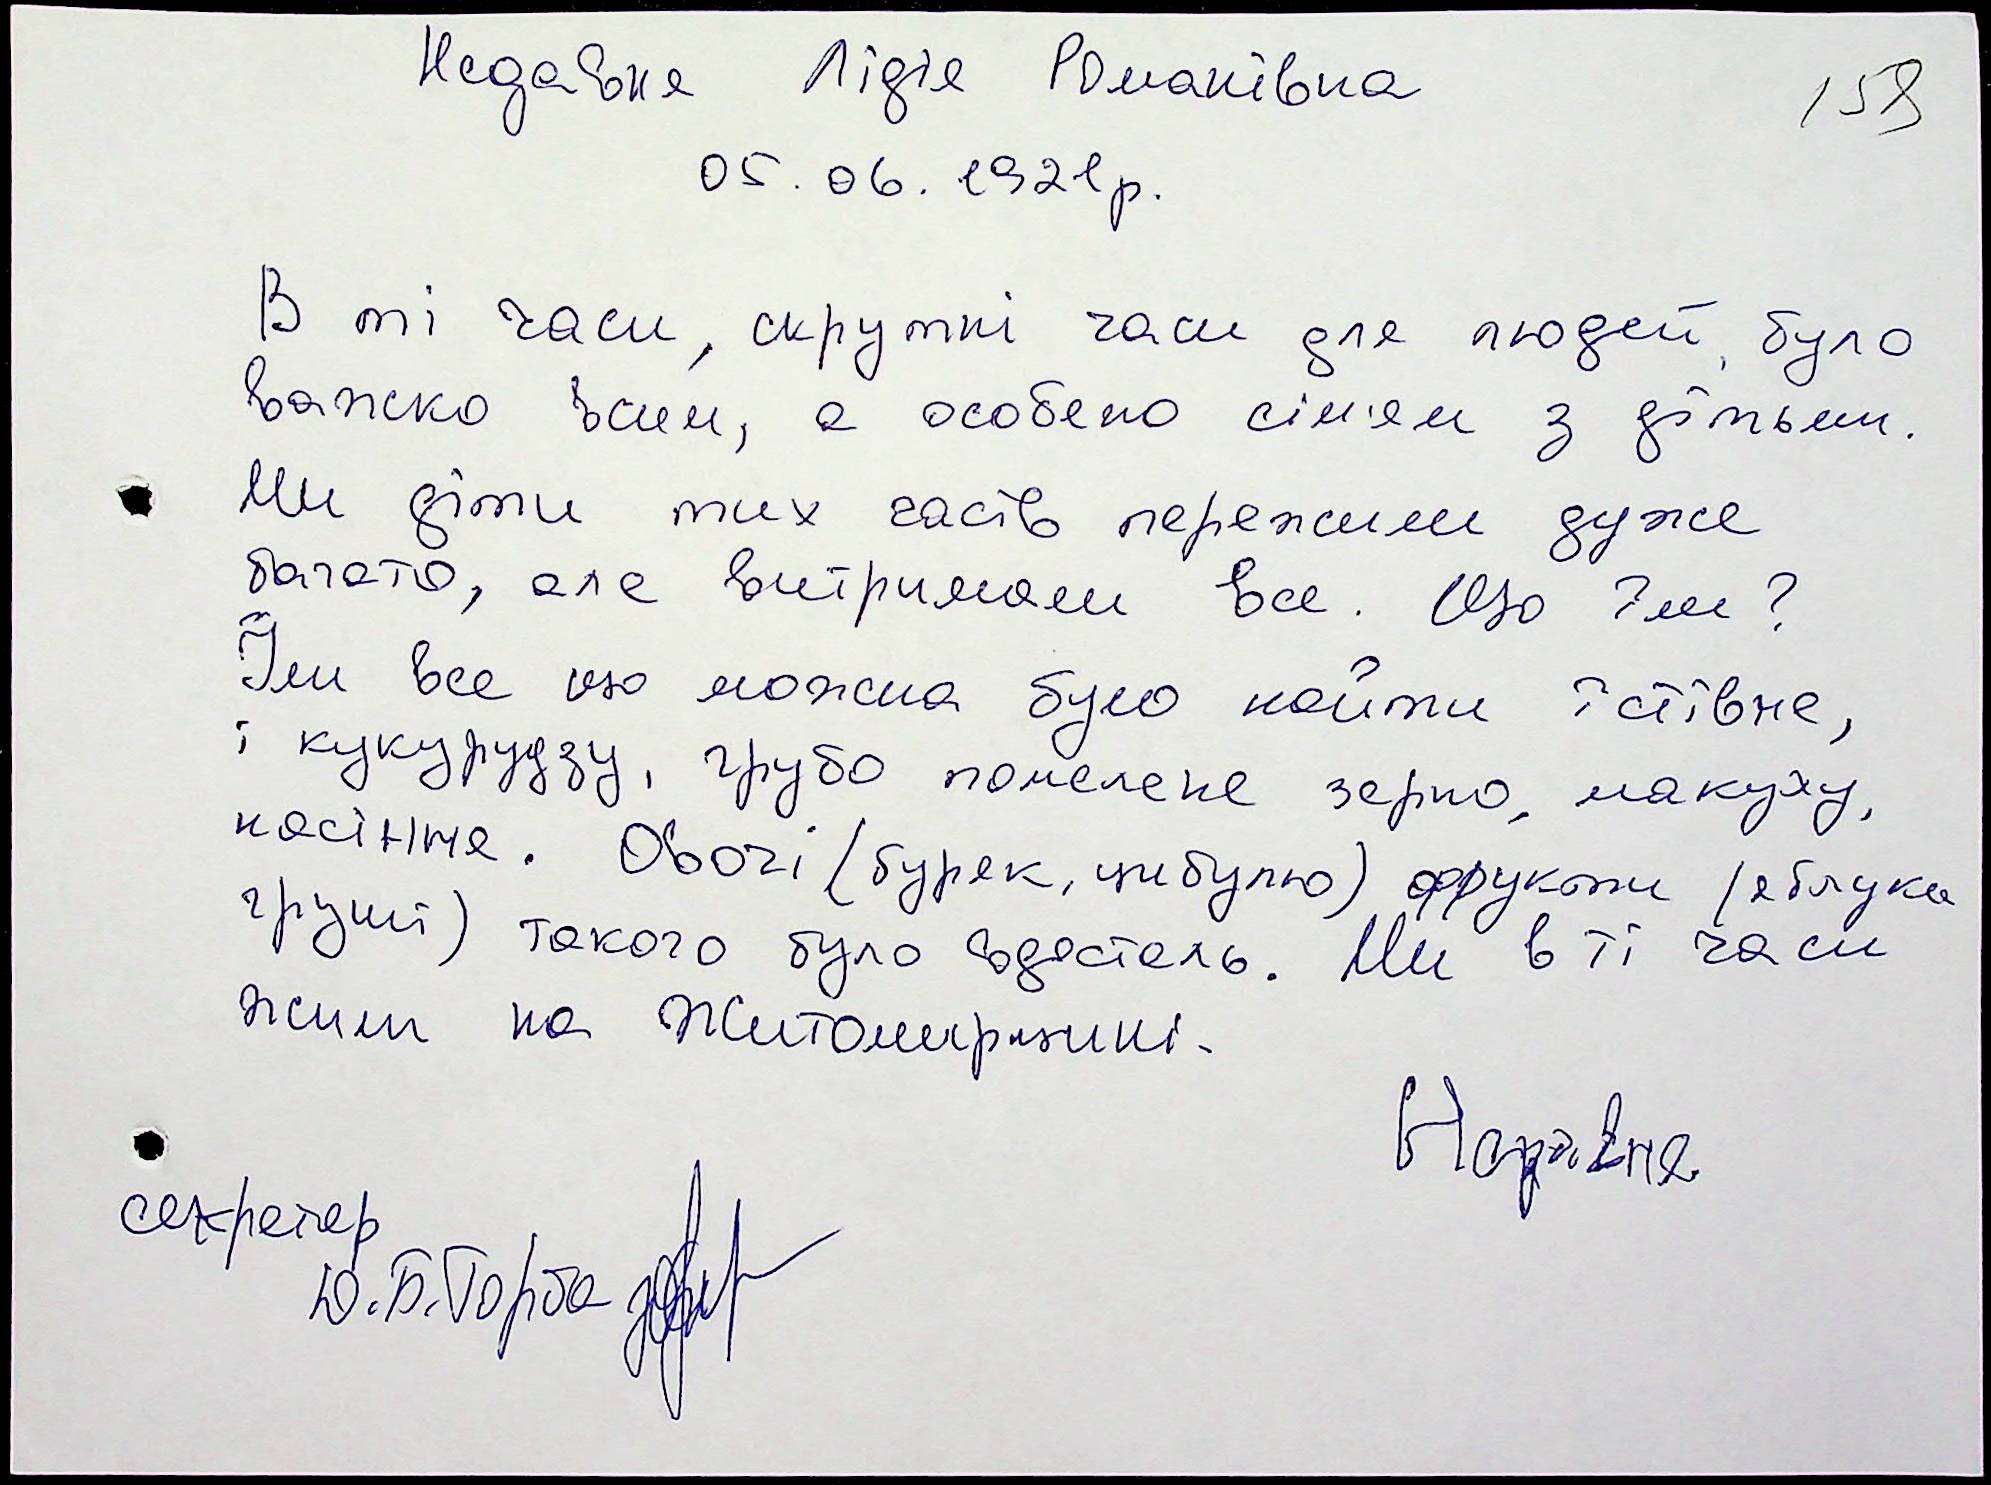 Недавня Лідія Романівна
159
05.06.1921р.
В ті часи, скрутні часи для людей, було
важко всим, а особено сім'ям з дітьми.
Ми діти тих часів пережили дуже
багато, але витримали все. Що їли?
Їли все що можна було найти їстівне,
і кукурудзу, грубо помелене зерно, макуху,
насіння. Овочі (буряк, цибулю) фрукти (яблука
груші) такого було вдосталь. Ми в ті часи
жили на Житомирщині.
Недавня
секретар
Ю.Б.Горба